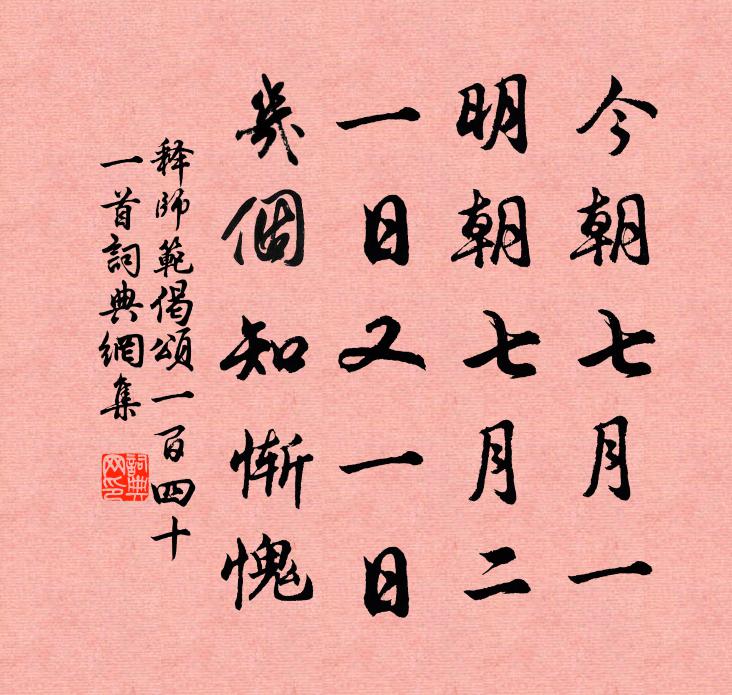 今朝七月一
明朝七月二
一日又一日
幾個知慚愧
釋師範偈頌一百四十
一首詞典網集
詞典網印